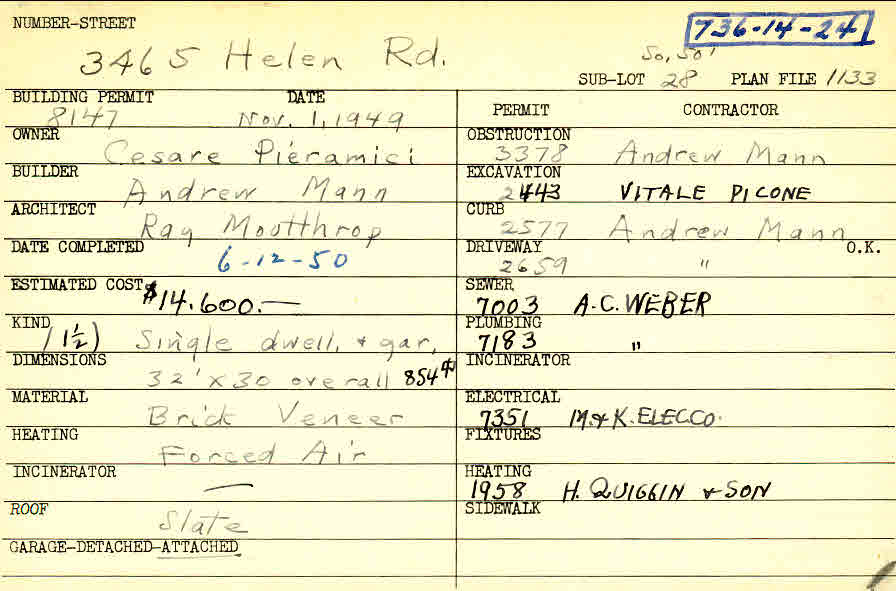 NUMBER-STREET
736-14-24
3465 Helen Rd.
So, 50'
SUB-LOT 28 PLAN FILE 1133
BUILDING PERMIT DATE
8147 Nov. 1, 1949
PERMIT CONTRACTOR
OWNER
Cesare Pieramici
OBSTRUCTION
3378 Andrew Mann
BUILDER
Andrew Mann
EXCAVATION
2443 VITALE PICONE
ARCHITECT
Ray Moutthrop
CURB
2577 Andrew Mann
DATE COMPLETED
6-12-50
DRIVEWAY O.K.
2659 "
ESTIMATED COST $14.600.—
SEWER
7003 A.C. WEBER
KIND
(1½) Single dwell. + gar.
PLUMBING
7183 "
DIMENSIONS
32' x 30 overall 854
INCINERATOR
MATERIAL
Brick Veneer
ELECTRICAL
7351 M.&K. ELEC.CO.
HEATING
Forced Air
FIXTURES
INCINERATOR
—
HEATING
1958 H. QUIGGIN & SON
ROOF
Slate
SIDEWALK
GARAGE-DETACHED-ATTACHED